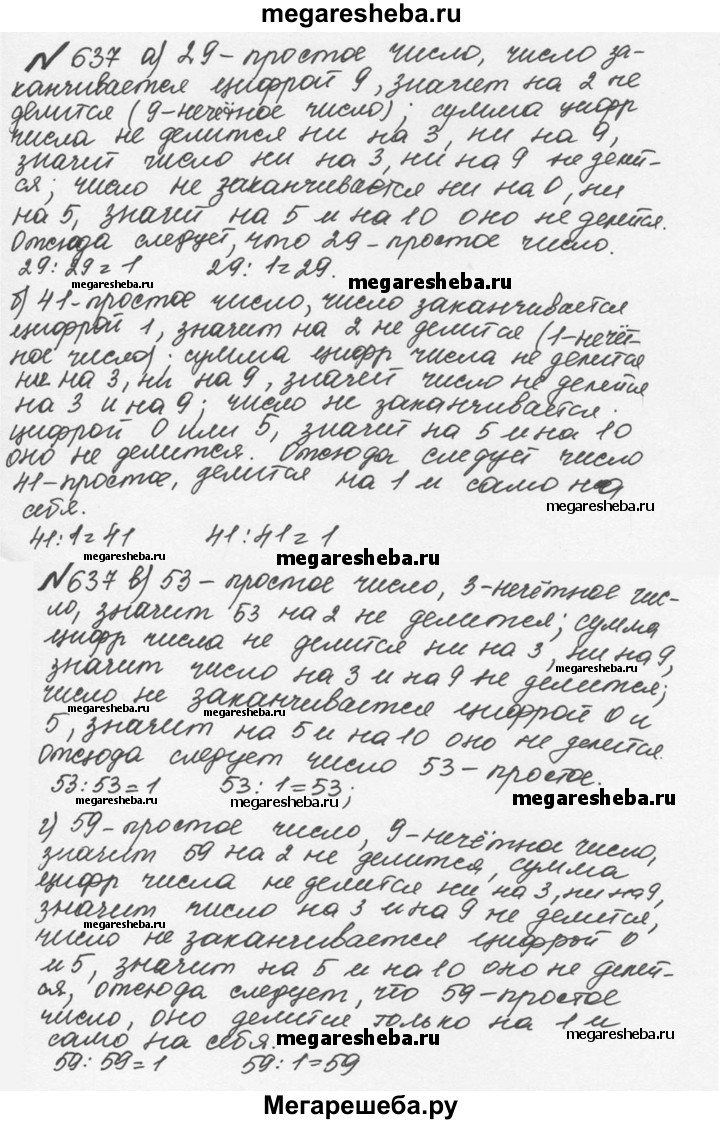 megaresheba.ru
№ 637 а) 29 - простое число, число за-
канчивается цифрой 9, значит на 2 не
делится (9 - нечётное число); сумма цифр
числа не делится ни на 3, ни на 9,
значит число ни на 3, ни на 9 не делит-
ся; число не заканчивается ни на 0, ни
на 5, значит на 5 и на 10 оно не делится.
Отсюда следует, что 29 - простое число.
29 : 29 = 1 29 : 1 = 29.
megaresheba.ru
б) 41 - простое число, число заканчивается
цифрой 1, значит на 2 не делится (1 - нечёт-
ное число); сумма цифр числа не делится
ни на 3, ни на 9, значит число не делится
на 3 и на 9; число не заканчивается
цифрой 0 или 5, значит на 5 и на 10
оно не делится. Отсюда следует число
41 - простое, делится на 1 и само на
себя.
megaresheba.ru
41 : 1 = 41 41 : 41 = 1
megaresheba.ru megaresheba.ru megaresheba.ru
№ 637 в) 53 - простое число, 3 - нечётное чис-
ло, значит 53 на 2 не делится; сумма
цифр числа не делится ни на 3, ни на 9,
значит число на 3 и на 9 не делится;
megaresheba.ru
число не заканчивается цифрой 0 и
megaresheba.ru megaresheba.ru
5, значит на 5 и на 10 оно не делится.
Отсюда следует число 53 - простое.
53 : 53 = 1 53 : 1 = 53;
megaresheba.ru megaresheba.ru megaresheba.ru
г) 59 - простое число, 9 - нечётное число,
значит 59 на 2 не делится, сумма
цифр числа не делится ни на 3, ни на 9,
значит число на 3 и на 9 не делится,
число не заканчивается цифрой 0
и 5, значит на 5 и на 10 оно не делит-
ся, отсюда следует, что 59 - простое
число, оно делится только на 1 и
само на себя.
megaresheba.ru megaresheba.ru
59 : 59 = 1 59 : 1 = 59
Мегарешеба.ру